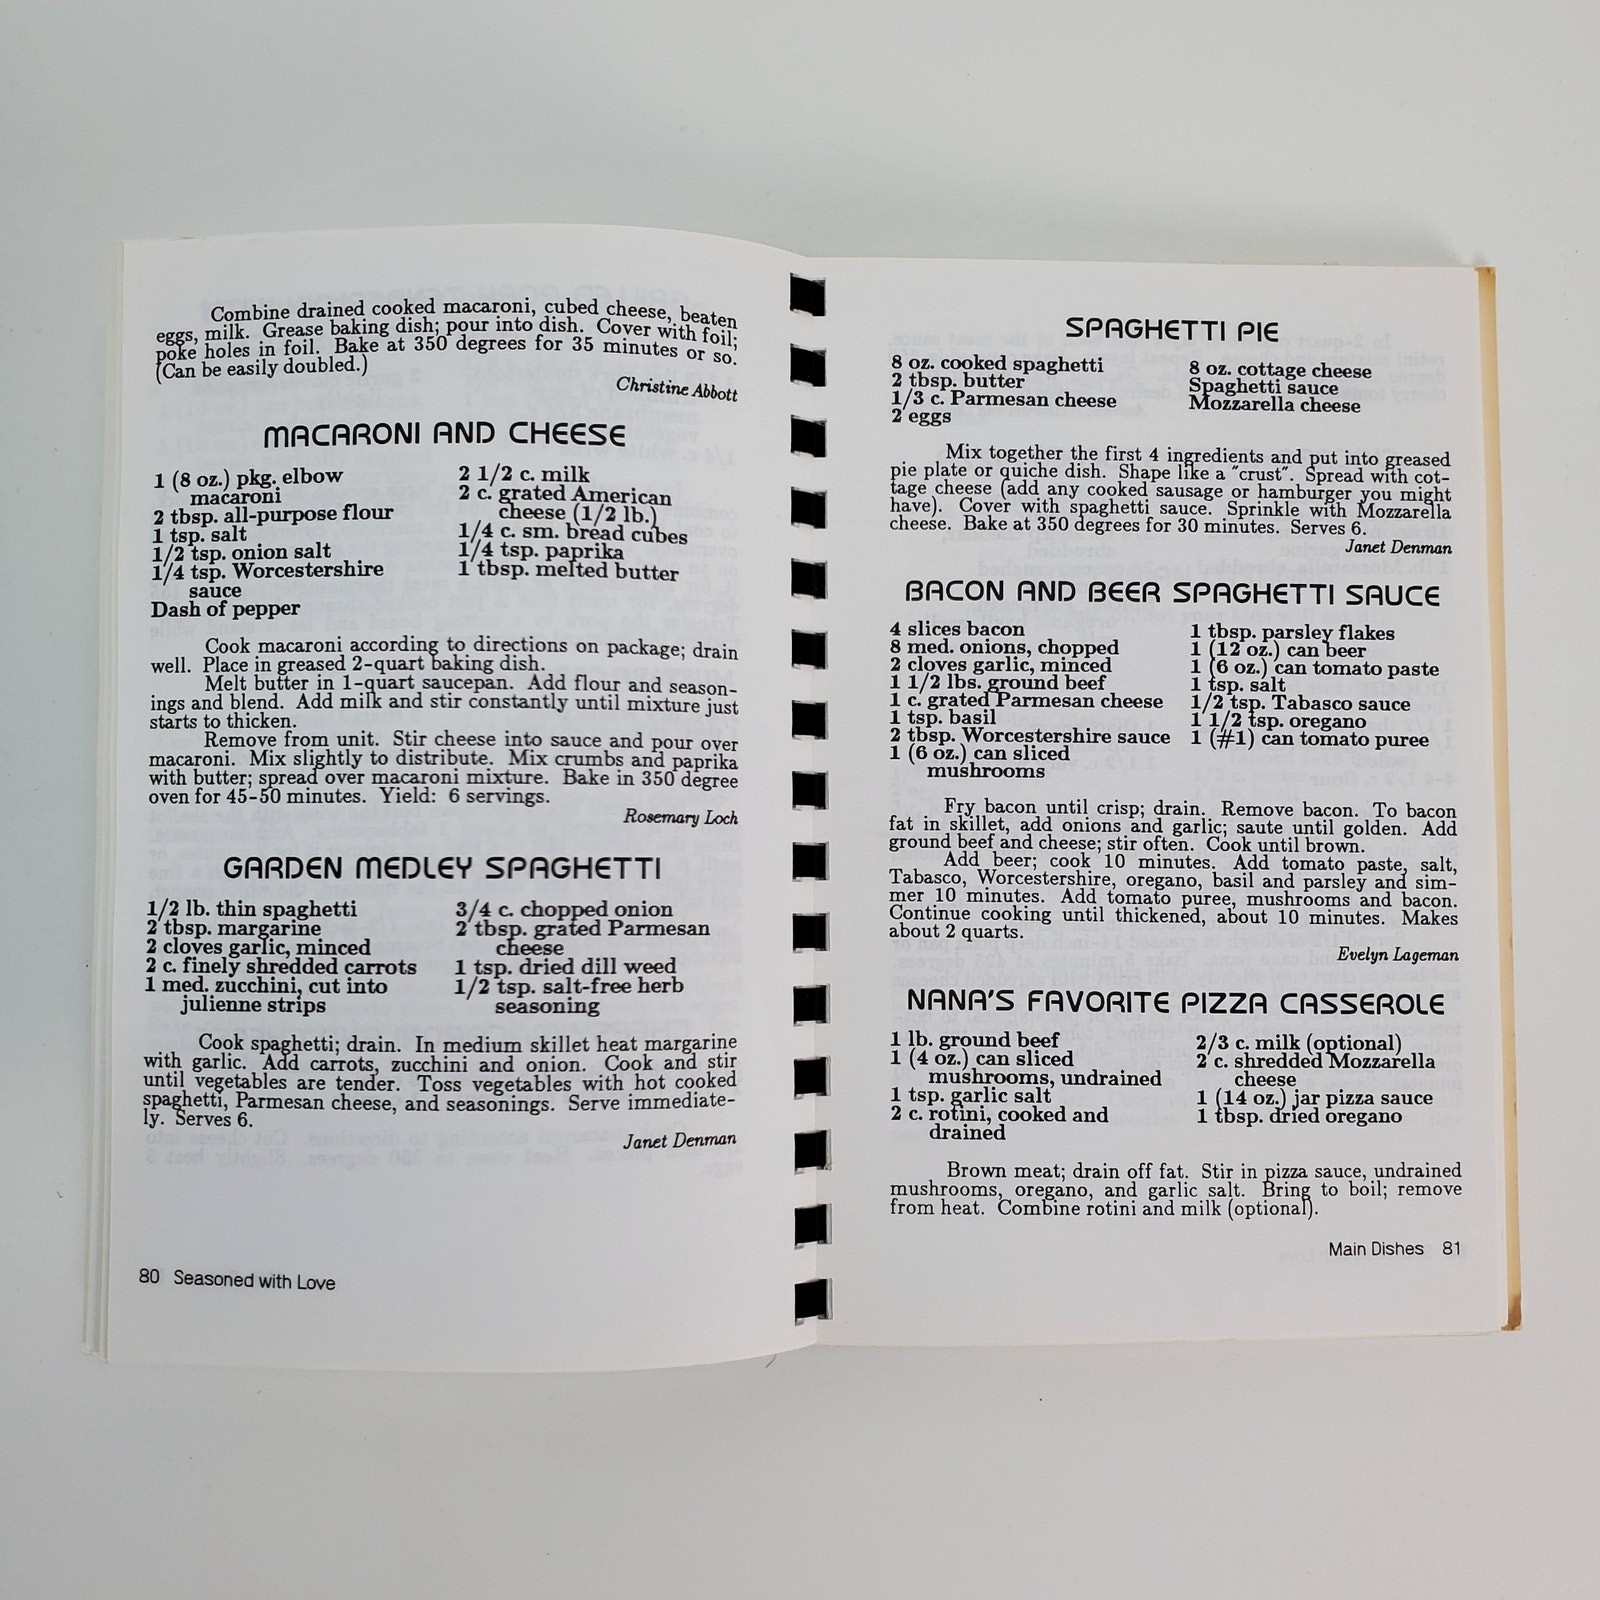 Combine drained cooked macaroni, cubed cheese, beaten
eggs, milk. Grease baking dish; pour into dish. Cover with foil;
poke holes in foil. Bake at 350 degrees for 35 minutes or so.
(Can be easily doubled.)
Christine Abbott
MACARONI AND CHEESE
1 (8 oz.) pkg. elbow
macaroni
2 tbsp. all-purpose flour
1 tsp. salt
1/2 tsp. onion salt
1/4 tsp. Worcestershire
sauce
Dash of pepper
2 1/2 c. milk
2 c. grated American
cheese (1/2 lb.)
1/4 c. sm. bread cubes
1/4 tsp. paprika
1 tbsp. melted butter
Cook macaroni according to directions on package; drain
well. Place in greased 2-quart baking dish.
Melt butter in 1-quart saucepan. Add flour and season-
ings and blend. Add milk and stir constantly until mixture just
starts to thicken.
Remove from unit. Stir cheese into sauce and pour over
macaroni. Mix slightly to distribute. Mix crumbs and paprika
with butter; spread over macaroni mixture. Bake in 350 degree
oven for 45-50 minutes. Yield: 6 servings.
Rosemary Loch
GARDEN MEDLEY SPAGHETTI
1/2 lb. thin spaghetti
2 tbsp. margarine
2 cloves garlic, minced
2 c. finely shredded carrots
1 med. zucchini, cut into
julienne strips
3/4 c. chopped onion
2 tbsp. grated Parmesan
cheese
1 tsp. dried dill weed
1/2 tsp. salt-free herb
seasoning
Cook spaghetti; drain. In medium skillet heat margarine
with garlic. Add carrots, zucchini and onion. Cook and stir
until vegetables are tender. Toss vegetables with hot cooked
spaghetti, Parmesan cheese, and seasonings. Serve immediate-
ly. Serves 6.
Janet Denman
80 Seasoned with Love
SPAGHETTI PIE
8 oz. cooked spaghetti
2 tbsp. butter
1/3 c. Parmesan cheese
2 eggs
8 oz. cottage cheese
Spaghetti sauce
Mozzarella cheese
Mix together the first 4 ingredients and put into greased
pie plate or quiche dish. Shape like a "crust". Spread with cot-
tage cheese (add any cooked sausage or hamburger you might
have). Cover with spaghetti sauce. Sprinkle with Mozzarella
cheese. Bake at 350 degrees for 30 minutes. Serves 6.
Janet Denman
BACON AND BEER SPAGHETTI SAUCE
4 slices bacon
8 med. onions, chopped
2 cloves garlic, minced
1 1/2 lbs. ground beef
1 c. grated Parmesan cheese
1 tsp. basil
2 tbsp. Worcestershire sauce
1 (6 oz.) can sliced
mushrooms
1 tbsp. parsley flakes
1 (12 oz.) can beer
1 (6 oz.) can tomato paste
1 tsp. salt
1/2 tsp. Tabasco sauce
1 1/2 tsp. oregano
1 (#1) can tomato puree
Fry bacon until crisp; drain. Remove bacon. To bacon
fat in skillet, add onions and garlic; saute until golden. Add
ground beef and cheese; stir often. Cook until brown.
Add beer; cook 10 minutes. Add tomato paste, salt,
Tabasco, Worcestershire, oregano, basil and parsley and sim-
mer 10 minutes. Add tomato puree, mushrooms and bacon.
Continue cooking until thickened, about 10 minutes. Makes
about 2 quarts.
Evelyn Lageman
NANA'S FAVORITE PIZZA CASSEROLE
1 lb. ground beef
1 (4 oz.) can sliced
mushrooms, undrained
1 tsp. garlic salt
2 c. rotini, cooked and
drained
2/3 c. milk (optional)
2 c. shredded Mozzarella
cheese
1 (14 oz.) jar pizza sauce
1 tbsp. dried oregano
Brown meat; drain off fat. Stir in pizza sauce, undrained
mushrooms, oregano, and garlic salt. Bring to boil; remove
from heat. Combine rotini and milk (optional).
Main Dishes 81